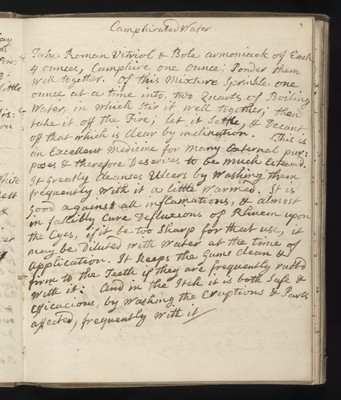 Camphirated Water
Take Roman Vitriol & Bole armoniack of Each
4 ounces, Camphire one ounce; Powder them
well together. Of this Mixture Sprinkle one
ounce at a time into, two Quarts of Boiling
Water, in which Stir it well together; then
take it off the Fire; let it Settle, & Decant
off that which is clear by inclination. This is
an Excellent Medicine for Many External pur=
poses & therefore Deserves to be much Esteemd.
It Greatly cleanses Ulcers by Washing them
frequently with it a little warmed. It is
Good against all inflamations, & almost
infallibly Cure Defluxions of Rhuem upon
the Eyes, if it be too Sharp for that use, it
may be Diluted with Water at the time of
Application. It keeps the Gums clean &
firm to the Teeth if they are frequently rubb'd
with it: And in the Itch it is both Safe &
Efficacious, by washing the Eruptions & Parts
affected, frequently with it